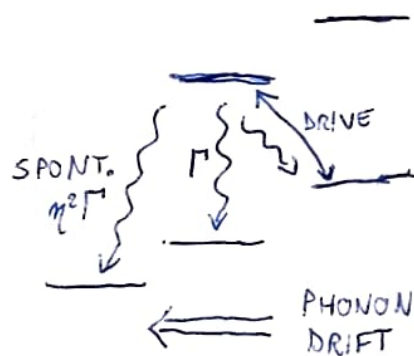 DRIVE
SPONT.
η²Γ
Γ
PHONON
DRIFT